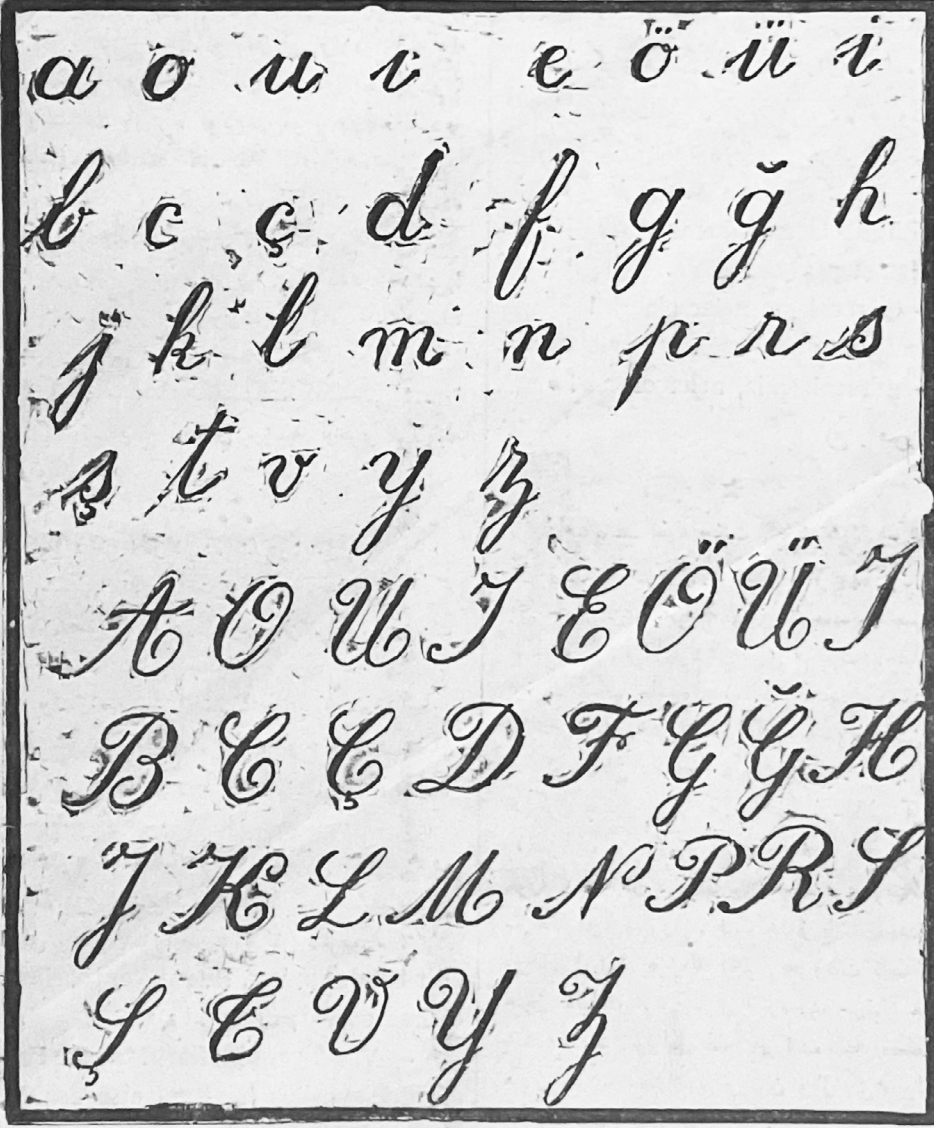 a o u ı e ö ü i
b c ç d f g ğ h
j k l m n p r s
ş t v y z
A O U I E Ö Ü I
B C Ç D F G Ğ H
J K L M N P R S
Ş T V Y Z